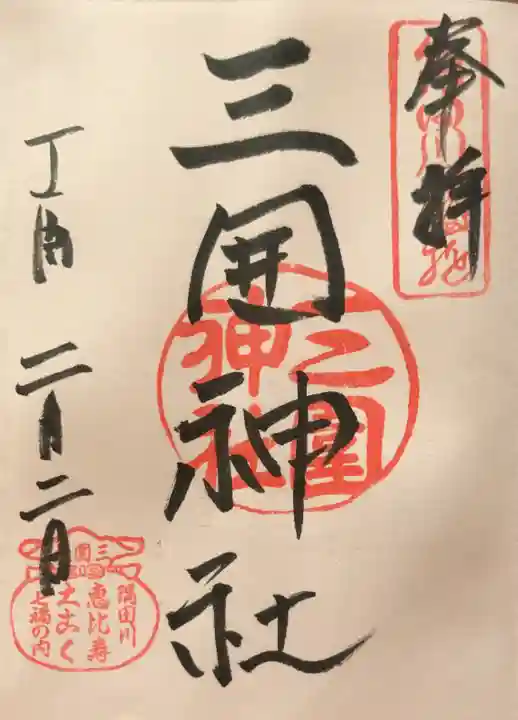 奉拝
三囲神社
丁酉 二月二日
三囲神社
三囲
隅田川
恵比寿
大こく
七福の内